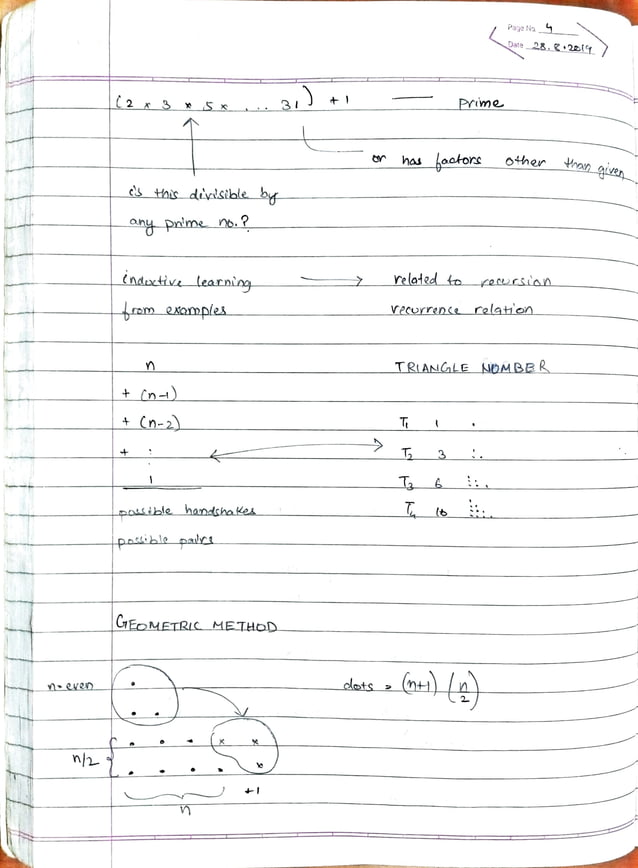 Page No. 4
Date 28.8.2019
(2 × 3 × 5 × ... 31) + 1 — Prime
or has factors other than given
is this divisible by
any prime no.?
inductive learning → related to recursion
from examples recurrence relation
n TRIANGLE NUMBER
+ (n-1)
+ (n-2) T₁ 1
+ ⋮ ↔ T₂ 3
1 T₃ 6
possible handshakes T₄ 10
possible pairs
GEOMETRIC METHOD
n-even dots = (n+1) (n/2)
n/2
n +1